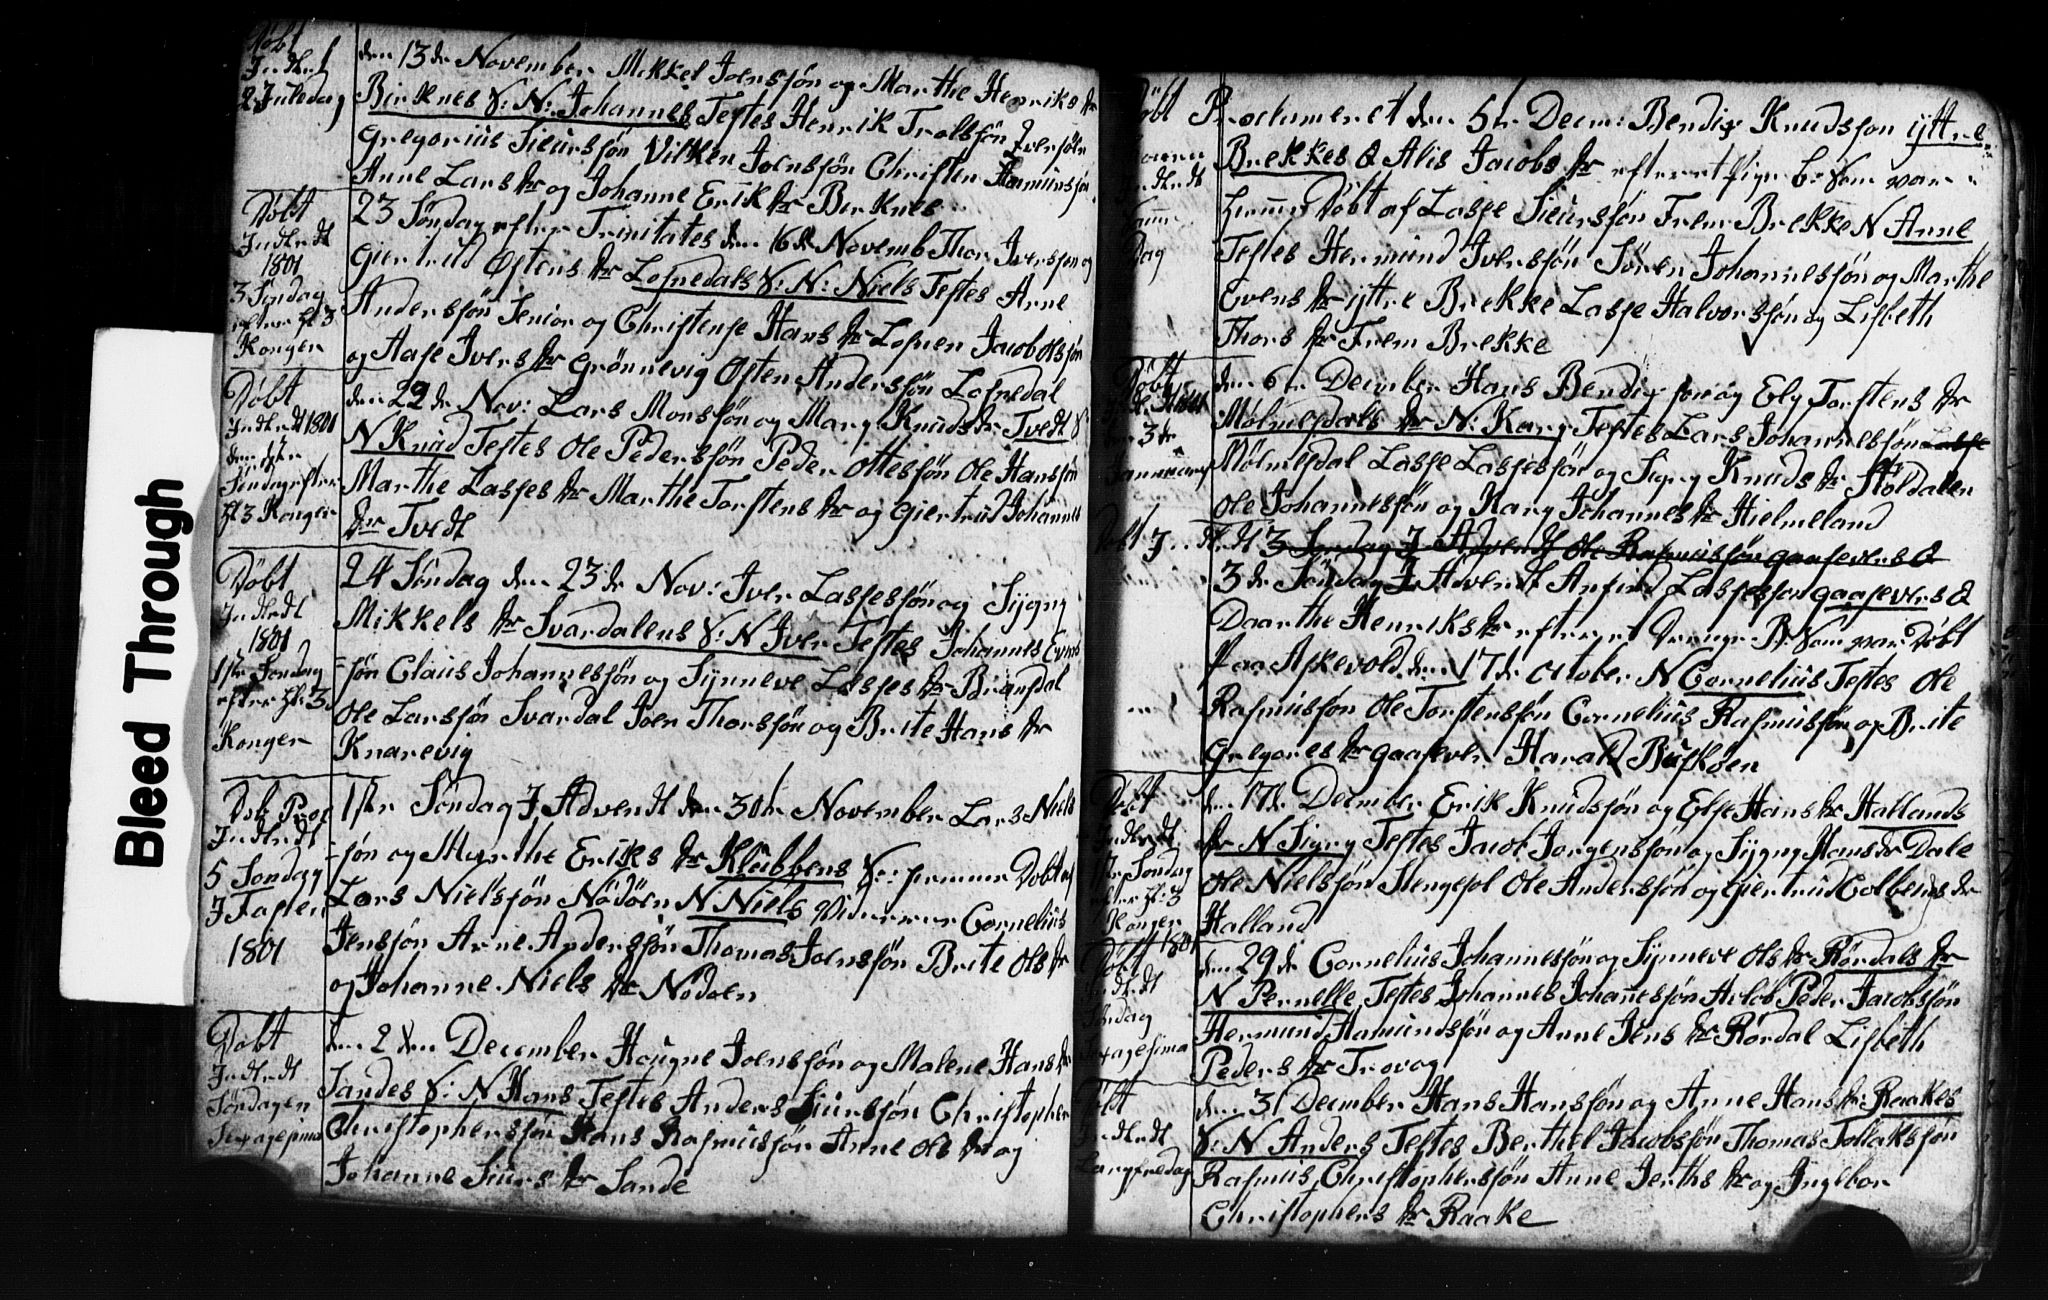 Bleed Through
Døbt
Indl. d. 1
2 Juledag
den 13de November Mikkel Joensøn og Marthe Henriks dr
Birknes S: N: Johannes Testes Henrik Trolsøn Iversøn
Gregorius Siursøn Vilken Joensøn Christen Hermunsøn
Anne Lars dr og Johanne Erik dr Birknes
Døbt
Indledt
1801
3 Søndag
efter hl 3
Konger
23 Søndag efter Trinitates den 16de Novemb Thor Iversøn og
Giertrud Østens dr Lofnedals S: N: Niels Testes Arne
Andersøn Senior og Christense Hans dr Lofnen Jacob Olsøn
og Aase Ivers dr Grønnevig Østen Andersøn Lofnedal
Døbt
Indledt 1801
den 1ste
Søndag efter
hl 3 Konger
den 22de Nov: Lars Monsøn og Mary Knuds dr Tvedt S
N Knud Testes Ole Pedersøn Peder Ottesøn Ole Hansøn
Marthe Lasses dr Marthe Torstens dr og Giertrud Johannes
dr Tvedt
Døbt
Indledt
1801
1ste Søndag
efter hl 3
Konger
24 Søndag den 23de Nov: Iver Lassesøn og Sygny
Mikkels dr Svardalens S: N Iver Testes Johannes Evens
søn Claus Johannessøn og Synneve Lasses dr Bransdal
Ole Larsøn Svardal Joen Thorsøn og Brite Hans dr
Knarevig
Døb Proc
Indledt
5 Søndag
I Fasten
1801
1ste Søndag I Advendt den 30te November Lars Niels
søn og Marthe Eriks dr Klubbens S: hiemme Døbt af
Lars Nielsøn Nødøen N Niels Vidnerne Cornelius
Jensøn Arne Andersøn Thomas Joensøn Brite Ols dr
og Johanne Niels dr Nødøen
Døbt
Indledt
Søndagen
Sexagesima
den 2den December Hougne Joensøn og Malene Hans dr
Sandes S: N Hans Testes Anders Siursøn Christopher
Christophersøn Hans Rasmusøn Anne Ols dr og
Johanne Siurs dr Sande
Døbt
Dag
Proclumeret den 5te Decm: Bendix Knudsøn yttre
Brekkes & Alis Jacobs dr efterret pige b: Som var
hiemme Døbt af Lasse Siursøn Frem Brekke N Anne
Testes Hermund Iversøn Søren Johannesøn og Marthe
Evens dr yttre Brekke Lasse Halvorsøn og Lisbeth
Thors dr Frem Brekke
Døbt
Indledt 1801
den 3de
Januarius
den 6te December Hans Bendixsøn og Ely Torstens dr
Mølmesdals dr N: Kary Testes Lars Johannesøn Lasse
Mølmesdal Lasse Lassesøn og Sygny Knuds dr Høldalen
Ole Johannesøn og Kary Johannes dr Hielmeland
Døbt Indledt 3 Søndag I Advendt Ole Rasmusøn Gaasevers &
3de Søndag I Advendt Anfind Lassesøn Gaasevers &
Daarthe Henriks dr efterret Drenge B: Som var Døbt
Paa Askevold den 17de October N Cornelius Testes Ole
Rasmusøn Ole Torstensøn Cornelius Rasmusøn og Brite
Gregores dr Gaasever Harald Buskøen
Døbt
Indledt
1ste Søndag
efter hl: 3
Konger
1801
den 17de December Erik Knudsøn og Else Hans dr Hallands
dr N Sigry Testes Jacob Jorgensøn og Sygny Hans dr Dale
Ole Nielsøn Stengesol Ole Andersøn og Giertrud Colbens dr
Halland
Døbt
Indledt
Søndag
Sexagesima
den 29de Cornelius Johannesøn og Synneve Ols dr Rørdals dr
N Pernelle Testes Johannes Johannesøn Arløb Peder Jacobsøn
Hermund Hamundsøn og Anne Jens dr Rørdal Lisbeth
Peders dr Trovog
Døbt
Indledt
Langfredag
den 31 December Hans Hansøn og Anne Hans dr Raakes
S: N Anders Testes Berthel Jacobsøn Thomas Tollaksøn
Rasmus Christophersøn Anne Jerths dr og Ingebor
Christophers dr Raake